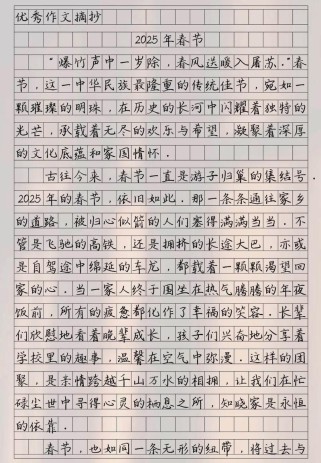 优秀作文摘抄
2025年春节
“爆竹声中一岁除,春风送暖入屠苏.”春
节,这一中华民族最隆重的传统佳节,宛如一
颗璀璨的明珠,在历史的长河中闪耀着独特的
光芒,承载着无尽的欢乐与希望,凝聚着深厚
的文化底蕴和家国情怀.
古往今来,春节一直是游子归巢的集结号.
2025年的春节,依旧如此,那一条条通往家乡
的道路,被归心似箭的人们塞得满满当当.不
管是飞驰的高铁,还是拥挤的长途大巴,亦或
是自驾途中绵延的车龙,都载着一颗颗渴望回
家的心.当一家人终于围坐在热气腾腾的年夜
饭前,所有的疲惫都化作了幸福的笑容.长辈
们欣慰地看着晚辈成长,孩子们兴奋地分享着
学校里的趣事,温馨在空气中弥漫.这样的团
聚,是亲情跨越千山万水的相拥,让我们在忙
碌尘世中寻得心灵的栖息之所,知晓家是永恒
的依靠.
春节,也如同一条无形的纽带,将过去与